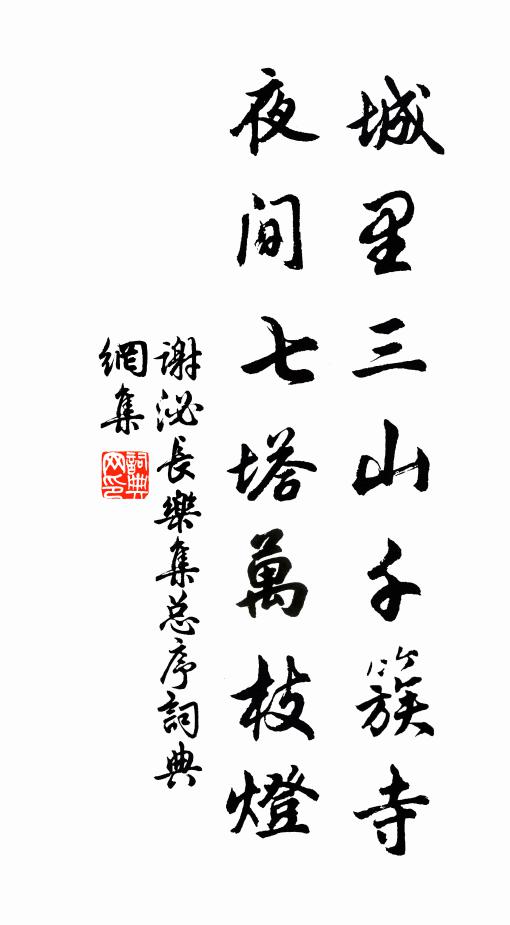 城里三山千簇寺
夜间七塔萬枝燈
谢泌長樂集总序詞典
網集
詞典网印